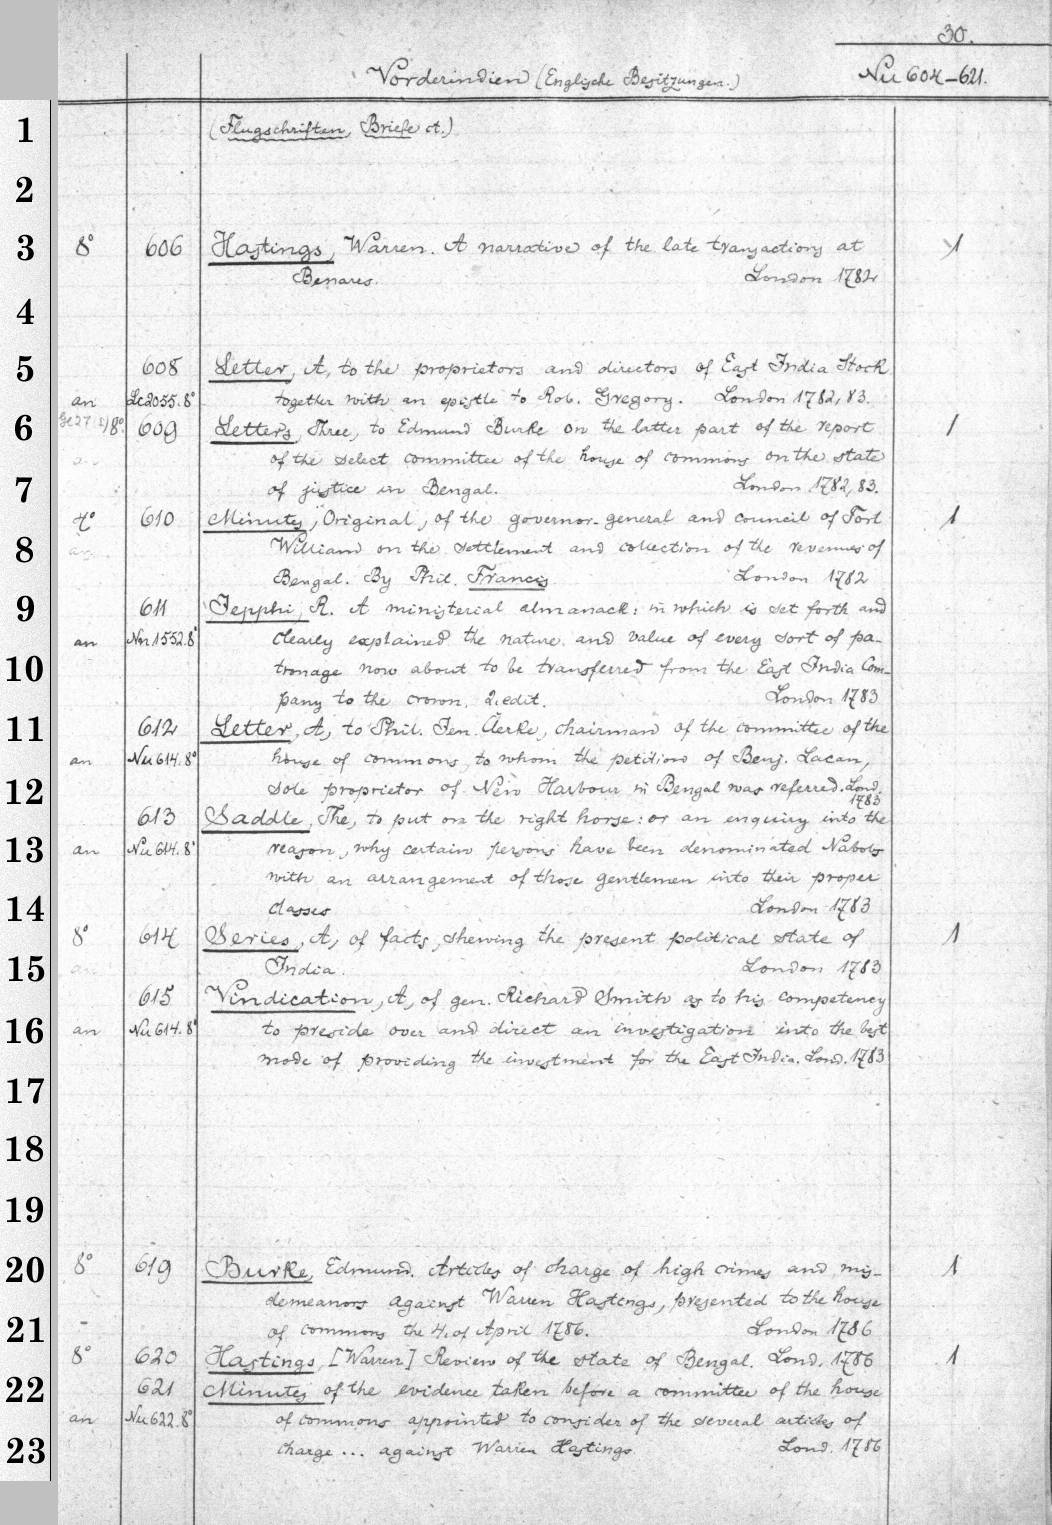 30.
Vorderindien (Englische Besitzungen.) Nu 604-621.
1 (Flugschriften, Briefe ct.)
2
3 8° 606 Hastings, Warren. A narrative of the late transactions at 1
Benares. London 1782
4
5 608 Letter, A, to the proprietors and directors of East India Stock
an Lc2055.8° together with an epistle to Rob. Gregory. London 1782,83.
6 8° 609 Letters, Three, to Edmund Burke on the latter part of the report 1
of the select committee of the house of commons on the state
7 of justice in Bengal. London 1782,83.
4° 610 Minutes, Original, of the governor-general and council of Fort 1
8 William on the settlement and collection of the revenues of
Bengal. By Phil. Francis London 1782
9 611 Jepphi, R. A ministerial almanack: in which is set forth and
an Nn1552.8° clearly explained the nature and value of every sort of pa-
10 tronage now about to be transferred from the East India Com-
pany to the crown. 2.edit. London 1783
11 612 Letter, A, to Phil. Jen. Clerke, chairman of the committee of the
an Nu614.8° house of commons, to whom the petition of Benj. Lacan,
12 sole proprietor of New Harbour in Bengal was referred. Lond.
1783
613 Saddle, The, to put on the right horse: or an enquiry into the
13 an Nu614.8° reason, why certain persons have been denominated Nabobs
with an arrangement of those gentlemen into their proper
14 classes London 1783
8° 614 Series, A, of facts, shewing the present political state of 1
15 India. London 1783
615 Vindication, A, of gen. Richard Smith as to his competency
16 an Nu614.8° to preside over and direct an investigation into the best
mode of providing the investment for the East India. Lond. 1783
17
18
19
20 8° 619 Burke, Edmund. Articles of charge of high crimes and mis- 1
demeanors against Warren Hastings, presented to the house
21 of commons the 4. of April 1786. London 1786
8° 620 Hastings, [Warren] Review of the state of Bengal. Lond. 1786 1
22 621 Minutes of the evidence taken before a committee of the house
an Nu622.8° of commons appointed to consider of the several articles of
23 charge ... against Warren Hastings Lond. 1786